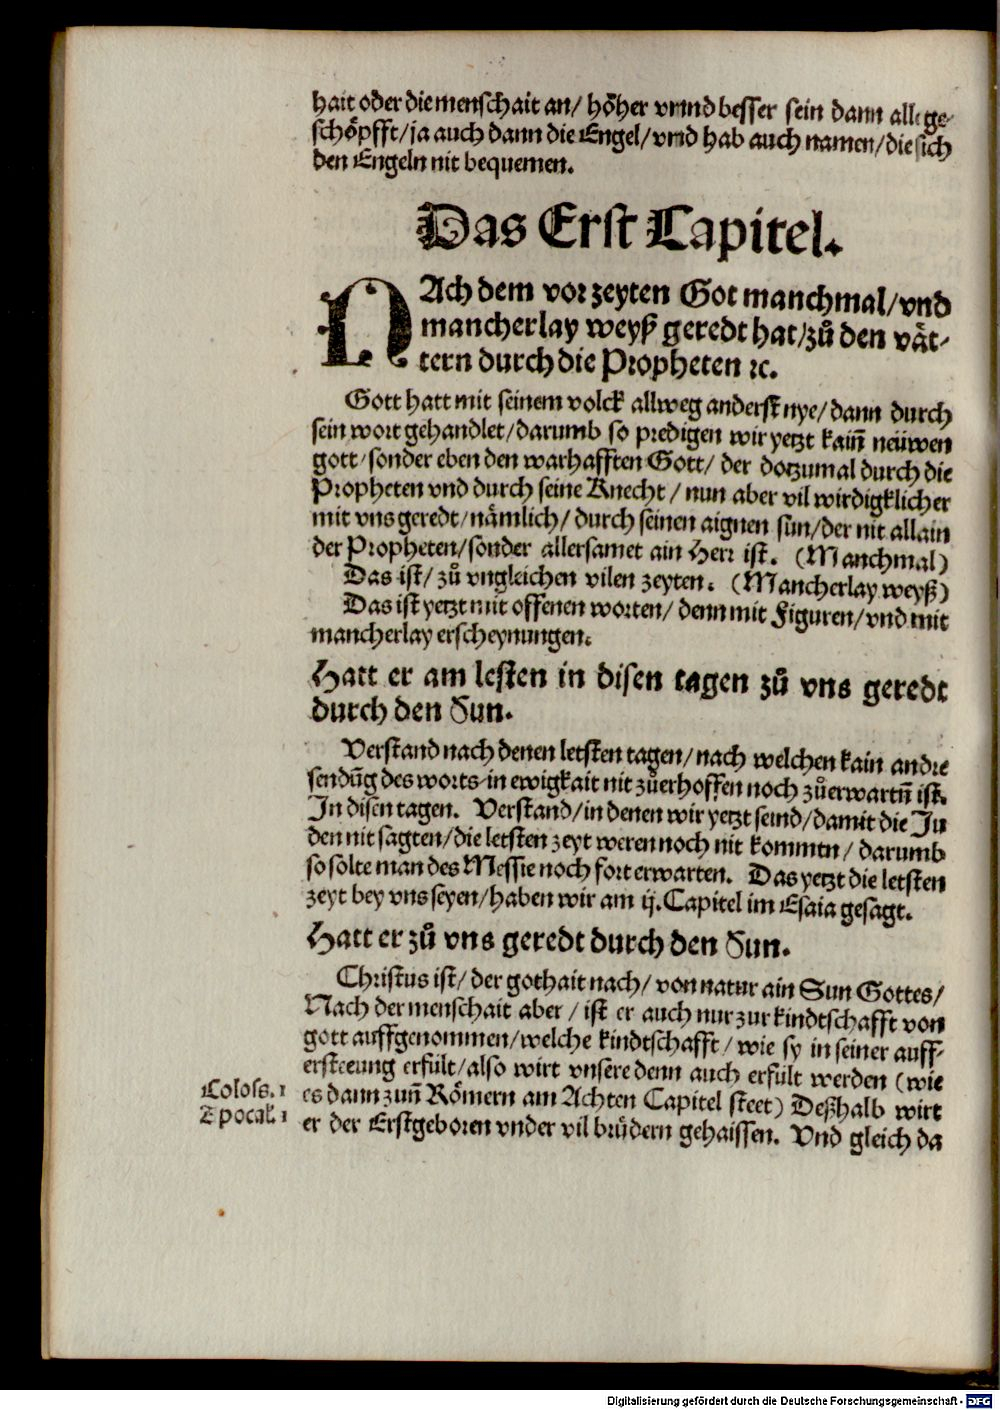 hait oder die menschait an/ höher vnnd besser sein dann alle ge-
schöpfft/ja auch dann die Engel/vnd hab auch namen/die sich
den Engeln nit bequemen.
Das Erst Capitel.
NAch dem vor zeyten Got manchmal/vnd
mancherlay weyß geredt hat/zů den vät-
tern durch die Propheten ꝛc.
Gott hatt mit seinem volck allweg anderst nye/dann durch
sein wort gehandlet/darumb so predigen wir yetzt kaiñ neüwen
gott/sonder eben den warhafften Gott/ der dotzumal durch die
Propheten vnd durch seine Knecht/ nun aber vil wirdigklicher
mit vns geredt/nämlich/ durch seinen aignen sün/der nit allain
der Propheten/sonder allersamet ain Herr ist. (Manchmal)
Das ist/ zů vngleichen vilen zeyten. (Mancherlay weyß)
Das ist yetzt mit offenen worten/ denn mit Figuren/vnd mit
mancherlay erscheynungen.
Hatt er am lesten in disen tagen zů vns geredt
durch den Sun.
Verstand nach denen letsten tagen/nach welchen kain andre
sendũg des worts in ewigkait nit zůerhoffen noch zůerwartñ ist.
In disen tagen. Verstand/in denen wir yetzt seind/damit die Ju
den nit sagten/die letsten zeyt weren noch nit kommen/ darumb
so solte man des Messie noch fort erwarten. Das yetzt die letsten
zeyt bey vns seyen/haben wir am ij. Capitel im Esaia gesagt.
Hatt er zů vns geredt durch den Sun.
Christus ist/ der gothait nach/ von natur ain Sun Gottes/
Nach der menschait aber/ ist er auch nur zur kindtschafft von
gott auffgenommen/welche kindtschafft/ wie sy in seiner auff-
ersteeung erfült/also wirt vnsere denn auch erfült werden (wie
Coloss. 1 es dann zuñ Römern am Achten Capitel steet) Deßhalb wirt
Apocal. 1 er der Erstgeboren vnder vil brüdern gehaissen. Vnd gleich da
Digitalisierung gefördert durch die Deutsche Forschungsgemeinschaft - DFG